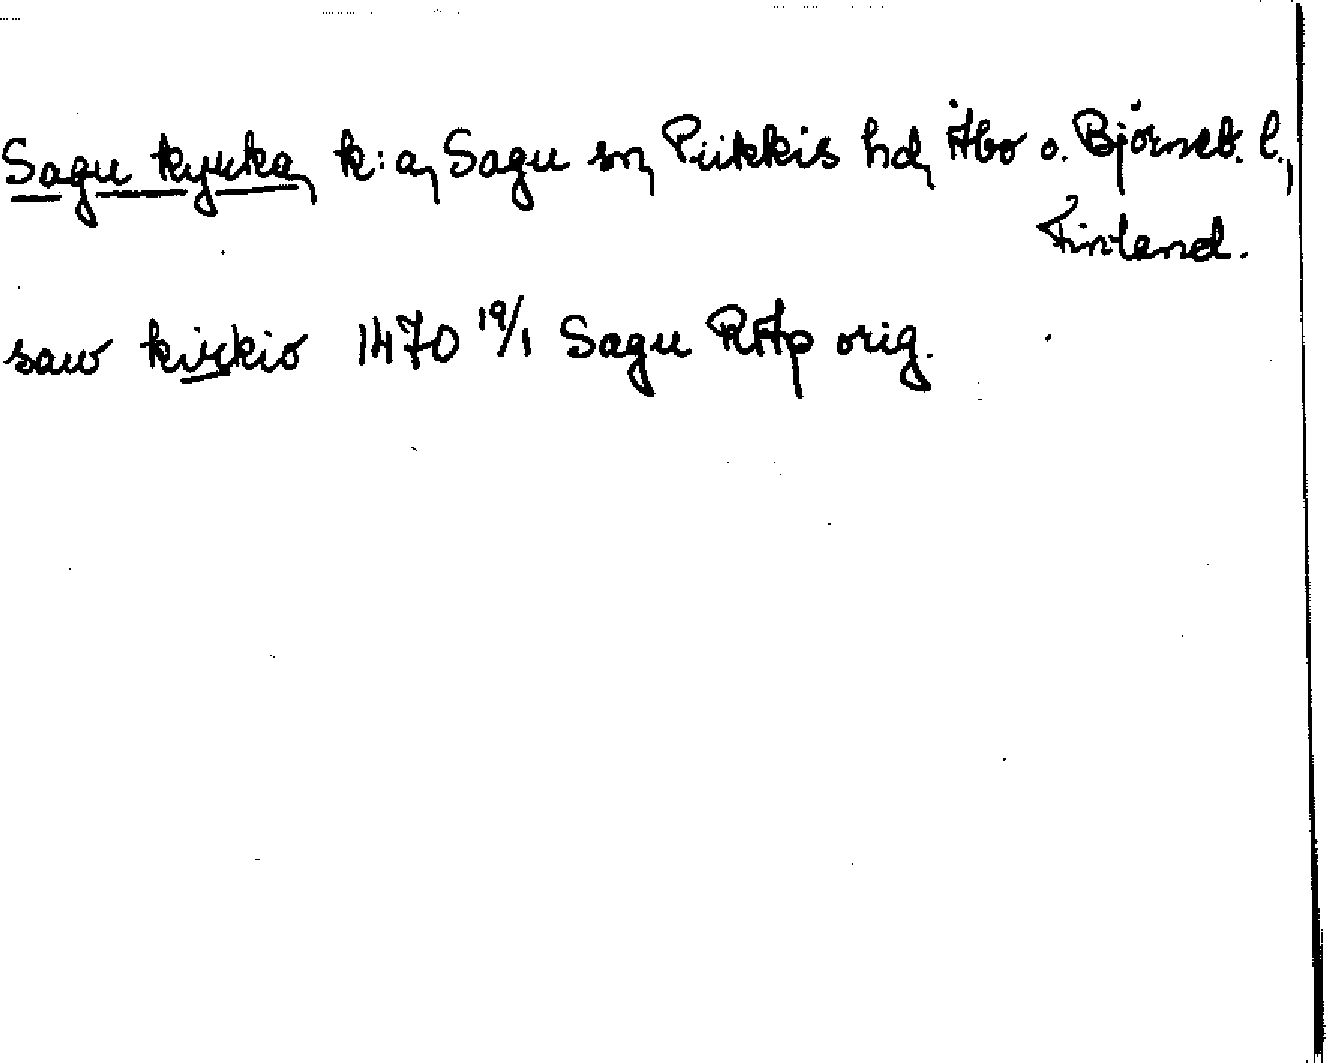 Sagu kyrka, k:a, Sagu sn, Piikkis hd, Åbo o. Björneb. l.,
Finland.
saw kirkio 1470 19/1 Sagu RAp orig.